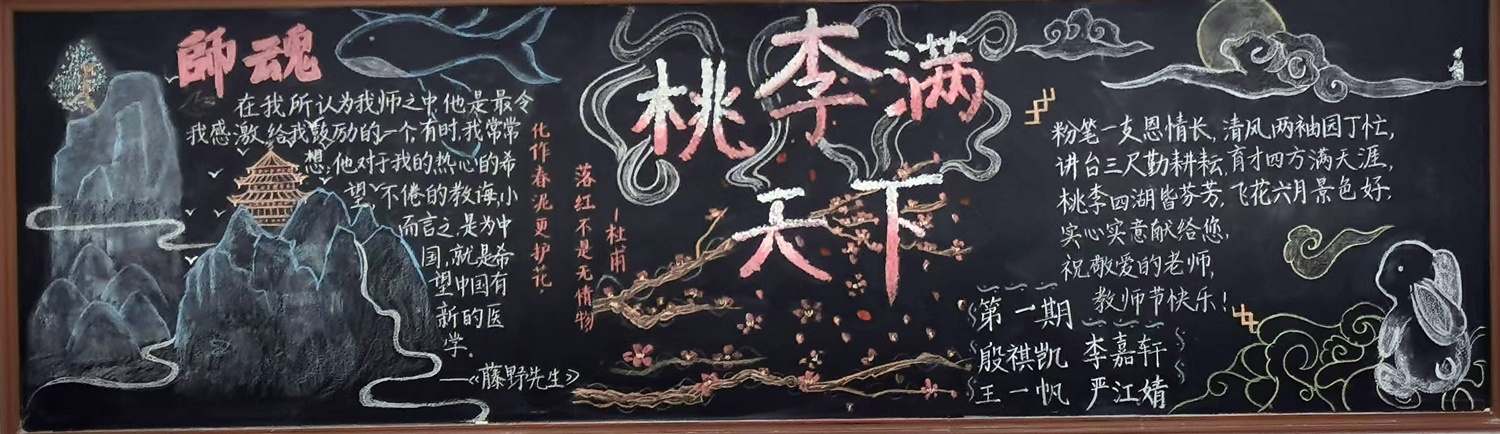 師魂
在我所认为我师之中,他是最令
我感激,给我鼓励的一个,有时,我常常
想:他对于我的热心的希
望,不倦的教诲,小
而言之,是为中
国,就是希
望中国有
新的医
学。
——《藤野先生》
落红不是无情物
化作春泥更护花。
—杜甫
桃李满
天下
粉笔一支恩情长,清风两袖园丁忙,
讲台三尺勤耕耘,育才四方满天涯,
桃李四湖皆芬芳,飞花六月景色好,
实心实意献给您,
祝敬爱的老师,
教师节快乐!
第一期
殷祺凯 李嘉轩
王一帆 严江婧